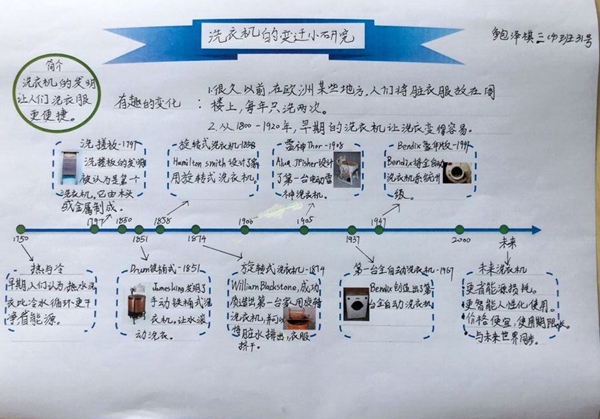 洗衣机的变迁小研究
简介
洗衣机的发明
让人们洗衣服
更便捷。
有趣的变化：
1.很久以前,在欧洲某些地方,人们将脏衣服放在阁
楼上,每年只洗两次。
2.从1800-1920年,早期的洗衣机让洗衣变得容易。
洗搓板-1797
洗搓板的发明
被认为是第一个
洗衣机,它由木头
或金属制成。
旋转式洗衣机-1858
Hamilton smith设计了家
用旋转式洗衣机。
雷神Thor-1908
Alva JFisher设计
了第一台电动雷
神洗衣机。
Bendix
Bendix将全自动
级。
1750
1797
1850
1851
1858
1874
1906
1905
1937
1947
2000
未来
热与冷
早期人们认为,热水洗
衣比冷水循环更干
净省能源。
Drum铁桶式-1851
James king发明了
手动铁桶式洗
衣机,让水滚
动洗衣。
旋转式洗衣机-1874
William Blackstone,成功
制造出第一台家用旋转
洗衣机,可以
将脏水排出,衣服
挤干。
第一台全自动洗衣机-1967
Bendix创造出了第
一台全自动洗衣机
未来洗衣机
更省能源损耗。
更智能人性化使用。
价格便宜,使用期限长。
与未来世界同步。